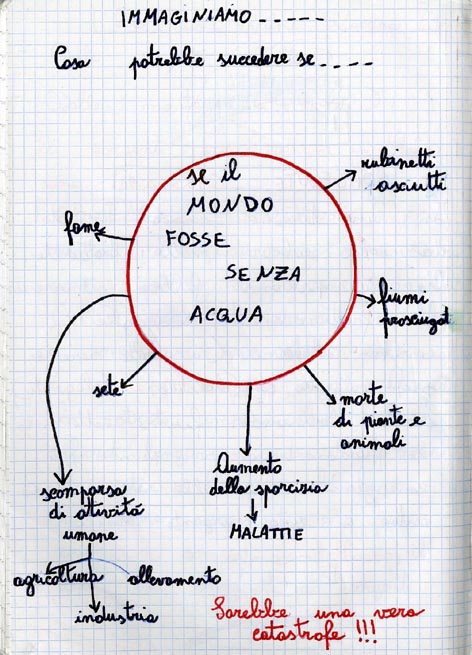 IMMAGINIAMO _ _ _ _ _
Cosa potrebbe succedere se _ _ _ _
se il
MONDO
FOSSE
SENZA
ACQUA
rubinetti
asciutti
fiumi
prosciugat
morte
di piante e
animali
Aumento
della sporcizia
MALATTIE
sete
fame
scomparsa
di attività
umane
agricoltura
allevamento
industria
Sarebbe una vera
catastrofe !!!